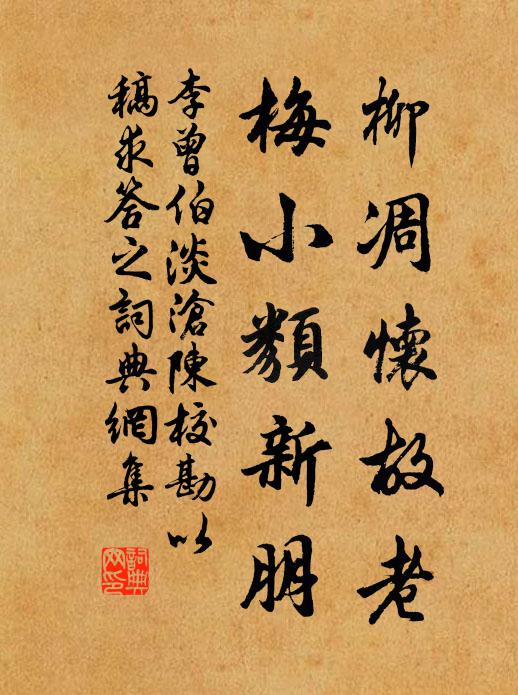 柳凋懷故老
梅小類新朋
李曾伯淡滄陳校勘以
稿求答之詞典網集
詞典
网印